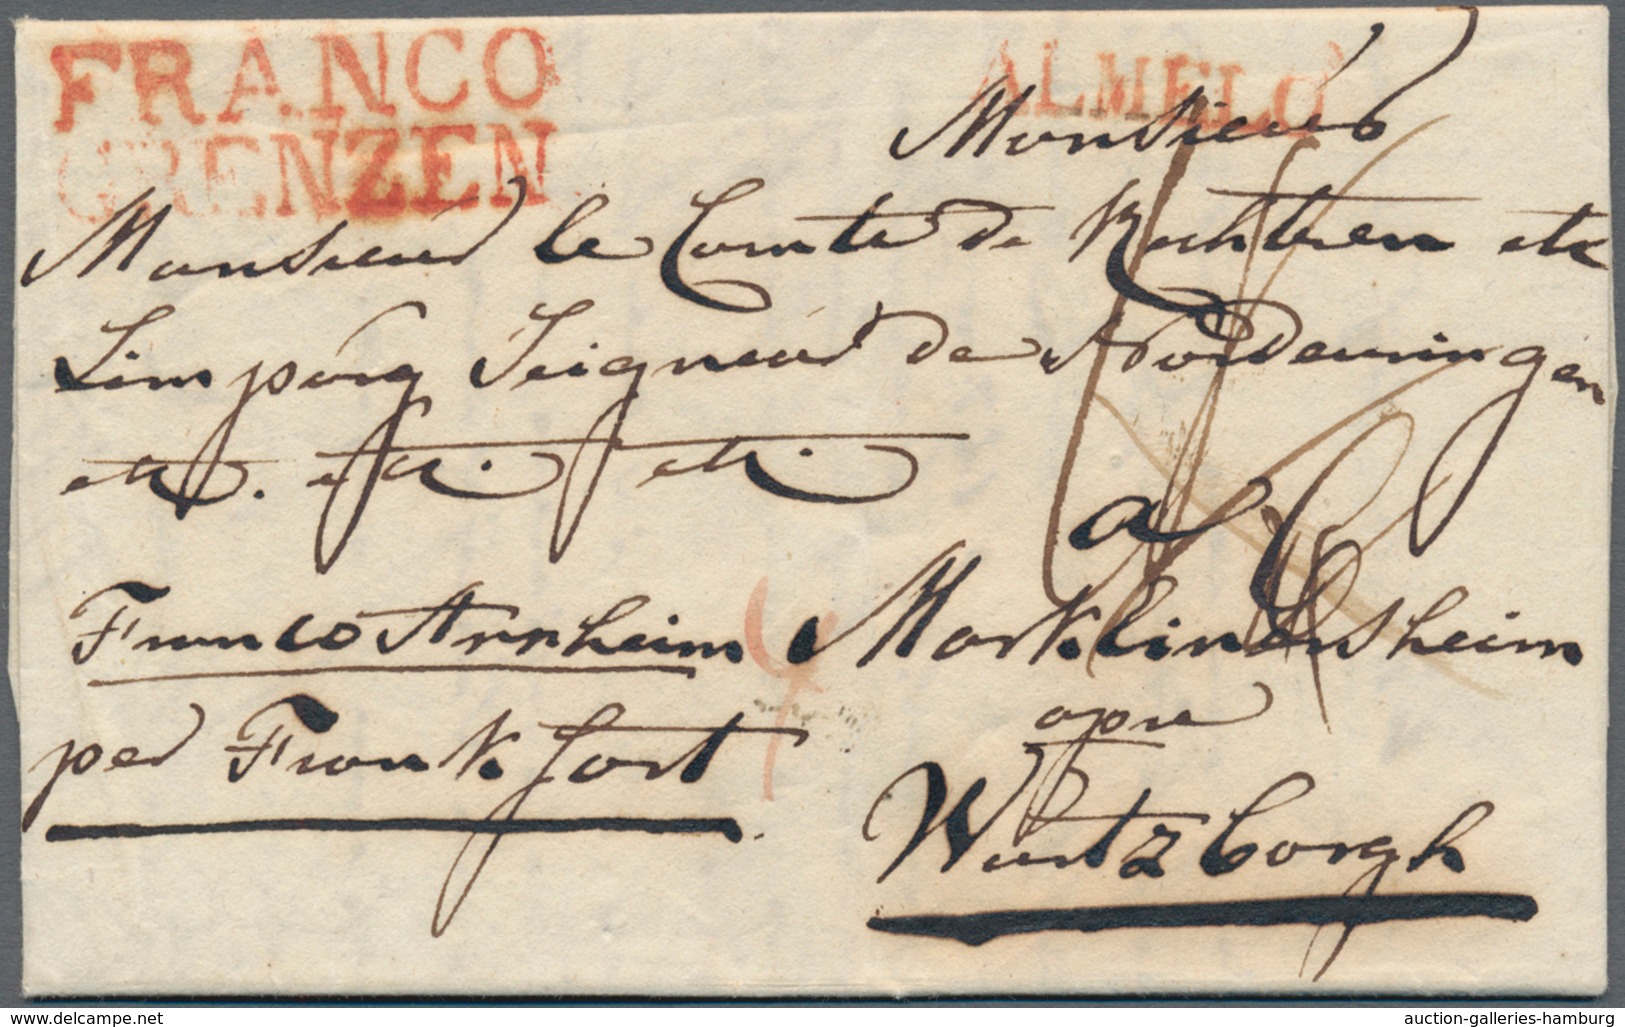 FRANCO
GRENZEN
ALMELO
Monsieur
Monsieur le Comte de Rechteren etc
Limpurg Seigneur de Nordeningen
etc. etc. etc.
a
Franco Arnheim
4
Marklindesheim
per Frankfort
apre
Wurtzborgh
www.delcampe.net
auction-galleries-hamburg